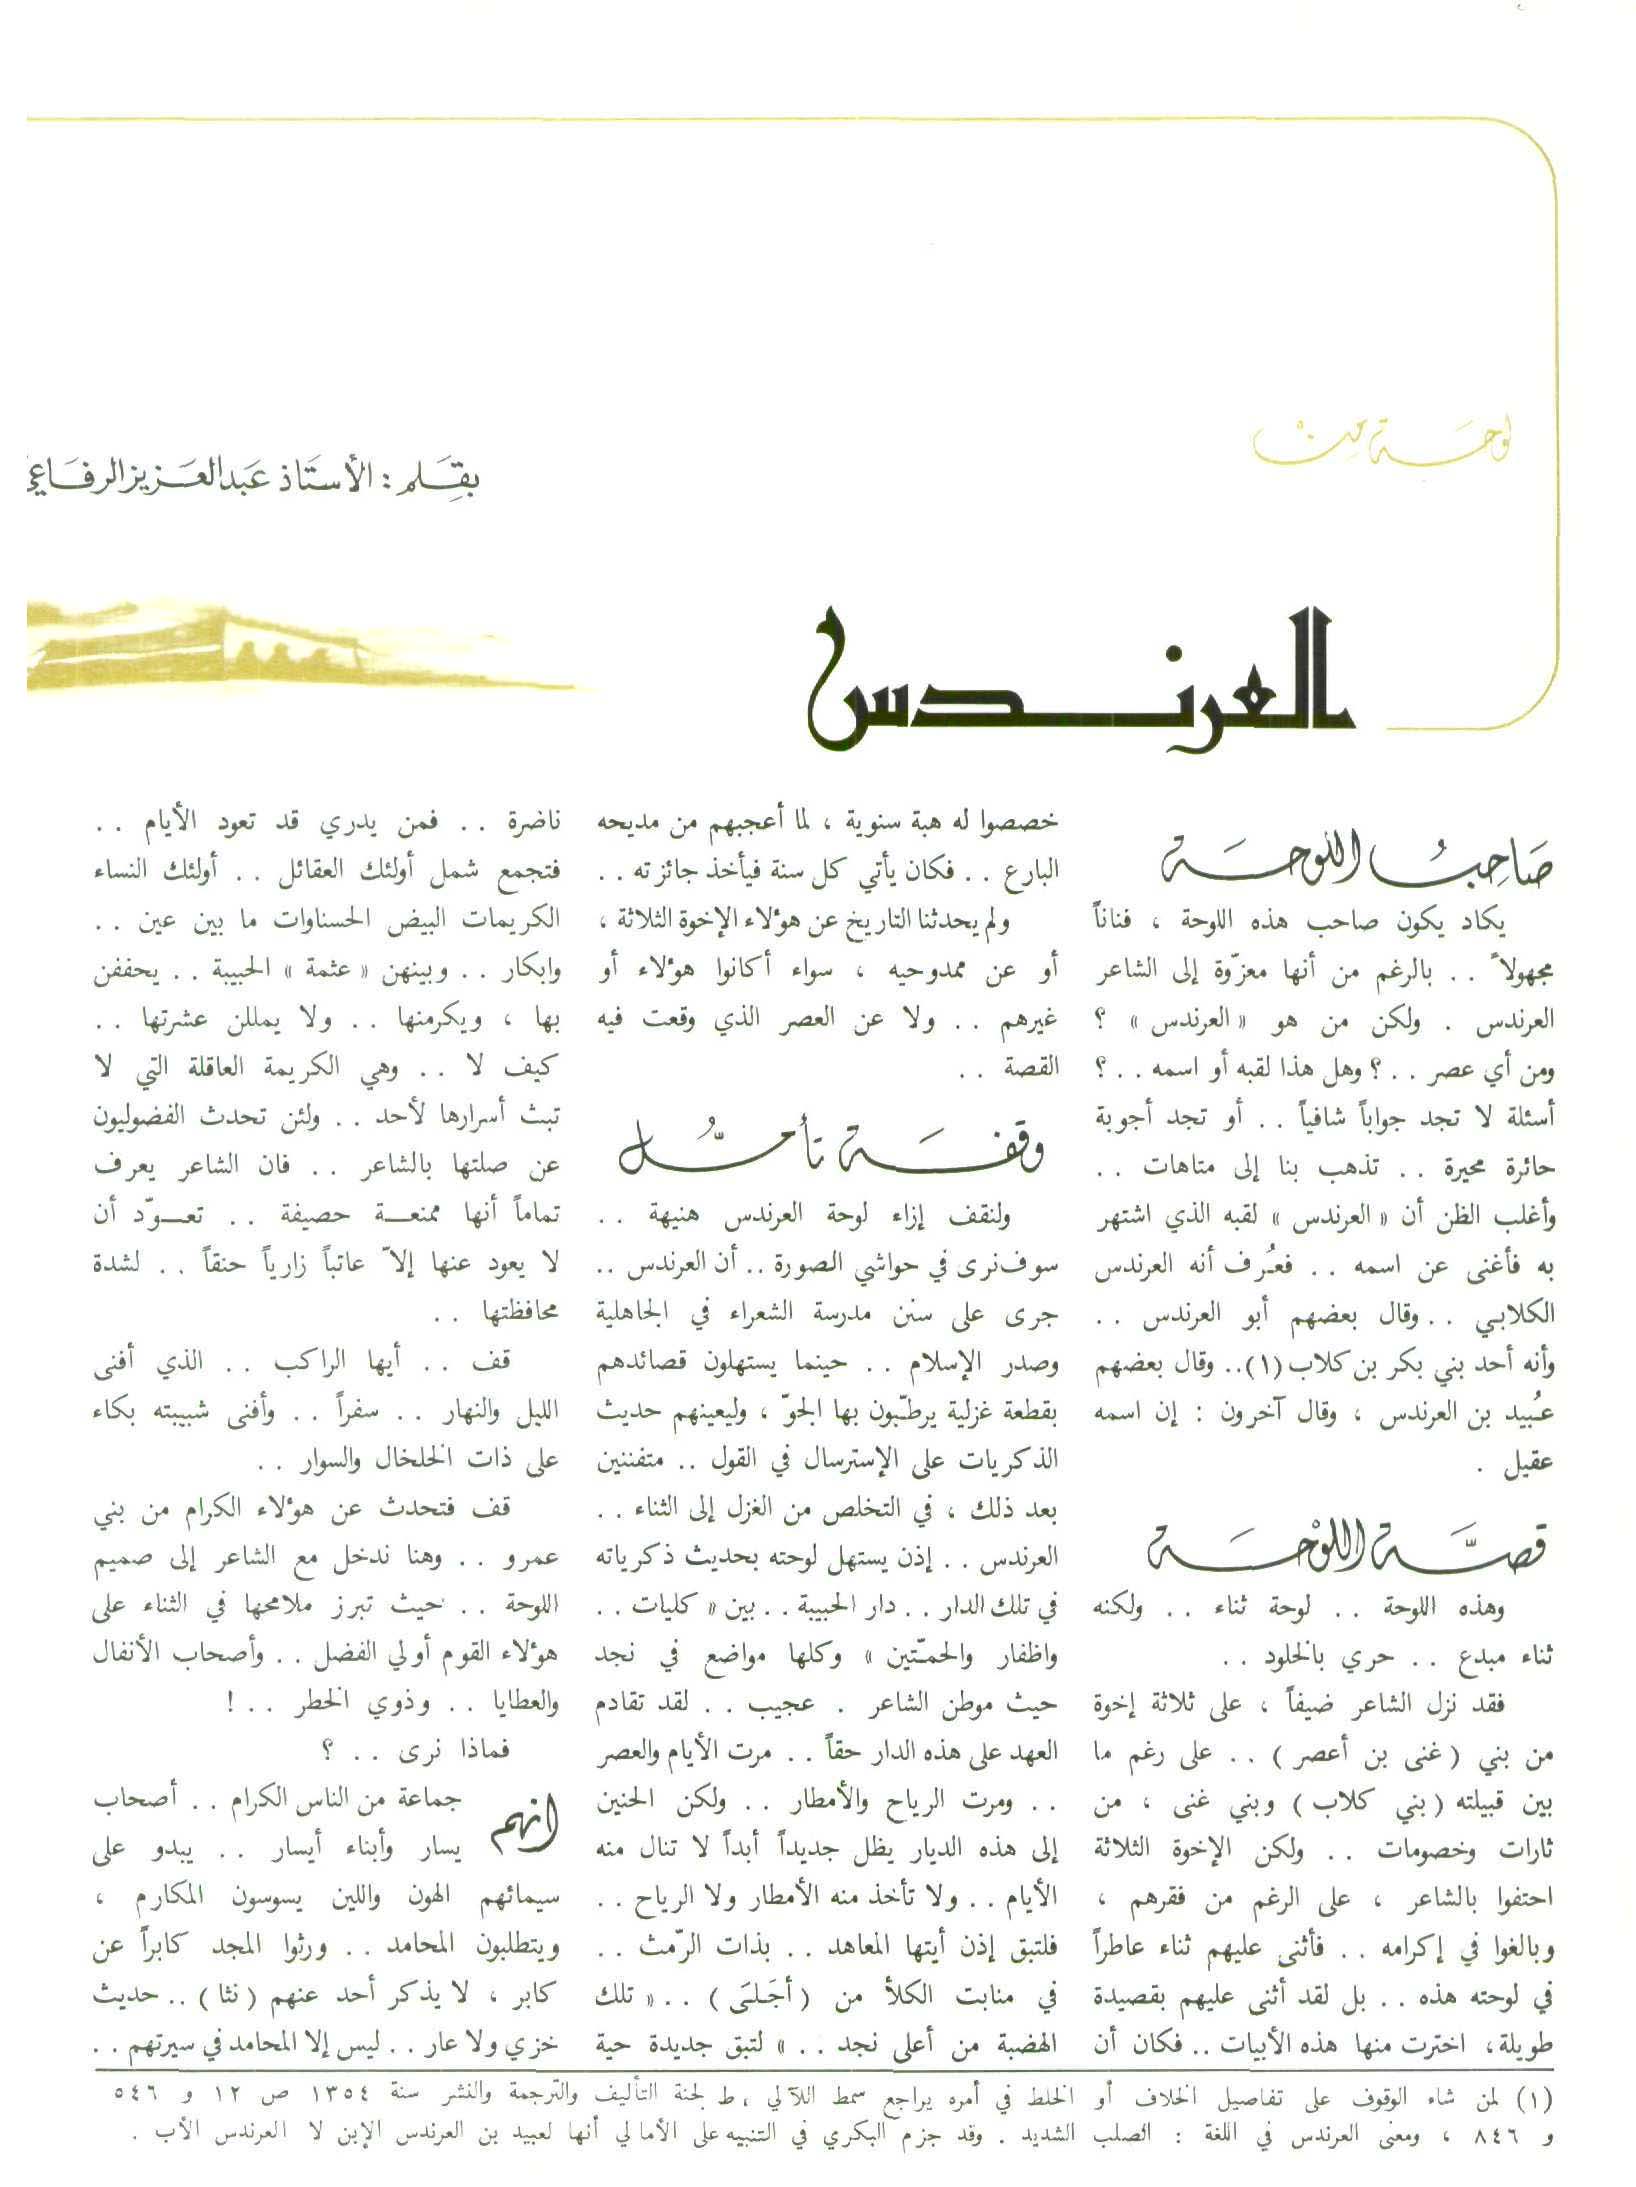 لوحة من
بقلم : الأستاذ عبد العزيز الرفاعي
العرندس
صاحب اللوحة
يكاد يكون صاحب هذه اللوحة ، فناناً
مجهولاً .. بالرغم من أنها معزوّة إلى الشاعر
العرندس . ولكن من هو « العرندس » ؟
ومن أي عصر .. ؟ وهل هذا لقبه أو اسمه .. ؟
أسئلة لا تجد جواباً شافياً .. أو تجد أجوبة
حائرة محيرة .. تذهب بنا إلى متاهات ..
وأغلب الظن أن « العرندس » لقبه الذي اشتهر
به فأغنى عن اسمه .. فعُرف أنه العرندس
الكلابي .. وقال بعضهم أبو العرندس ..
وأنه أحد بني بكر بن كلاب (١).. وقال بعضهم
عُبيد بن العرندس ، وقال آخرون : إن اسمه
عقيل .
قصّة اللوحة
وهذه اللوحة .. لوحة ثناء .. ولكنه
ثناء مبدع .. حري بالخلود ..
فقد نزل الشاعر ضيفاً ، على ثلاثة إخوة
من بني ( غنى بن أعصر ) .. على رغم ما
بين قبيلته ( بني كلاب ) وبني غنى ، من
ثارات وخصومات .. ولكن الإخوة الثلاثة
احتفوا بالشاعر ، على الرغم من فقرهم ،
وبالغوا في إكرامه .. فأثنى عليهم ثناء عاطراً
في لوحته هذه .. بل لقد أثنى عليهم بقصيدة
طويلة، اخترت منها هذه الأبيات .. فكان أن
خصصوا له هبة سنوية ، لما أعجبهم من مديحه
البارع .. فكان يأتي كل سنة فيأخذ جائزته ..
ولم يحدثنا التاريخ عن هؤلاء الإخوة الثلاثة ،
أو عن ممدوحيه ، سواء أكانوا هؤلاء أو
غيرهم .. ولا عن العصر الذي وقعت فيه
القصة ..
وقفة تأمّل
ولنقف إزاء لوحة العرندس هنيهة ..
سوف نرى في حواشي الصورة .. أن العرندس ..
جرى على سنن مدرسة الشعراء في الجاهلية
وصدر الإسلام .. حينما يستهلون قصائدهم
بقطعة غزلية يرطّبون بها الجوّ ، وليعينهم حديث
الذكريات على الإسترسال في القول .. متفننين
بعد ذلك ، في التخلص من الغزل إلى الثناء ..
العرندس .. إذن يستهل لوحته بحديث ذكرياته
في تلك الدار .. دار الحبيبة .. بين « كليات ..
واظفار والحمّتين » وكلها مواضع في نجد
حيث موطن الشاعر . عجيب .. لقد تقادم
العهد على هذه الدار حقاً .. مرت الأيام والعصر
.. ومرت الرياح والأمطار .. ولكن الحنين
إلى هذه الديار يظل جديداً أبداً لا تنال منه
الأيام .. ولا تأخذ منه الأمطار ولا الرياح ..
فلتبق إذن أيتها المعاهد .. بذات الرّمث ..
في منابت الكلأ من ( أجَلَى ) .. « تلك
الهضبة من أعلى نجد .. » لتبق جديدة حية
ناضرة .. فمن يدري قد تعود الأيام ..
فتجمع شمل أولئك العقائل .. أولئك النساء
الكريمات البيض الحسناوات ما بين عين ..
وابكار .. وبينهن « عثمة » الحبيبة .. يحففن
بها ، ويكرمنها .. ولا يمللن عشرتها ..
كيف لا .. وهي الكريمة العاقلة التي لا
تبث أسرارها لأحد .. ولئن تحدث الفضوليون
عن صلتها بالشاعر .. فان الشاعر يعرف
تماماً أنها ممنعة حصيفة .. تعوّد أن
لا يعود عنها إلاّ عاتباً زارياً حنقاً .. لشدة
محافظتها ..
قف .. أيها الراكب .. الذي أفنى
الليل والنهار .. سفراً .. وأفنى شبيبته بكاء
على ذات الخلخال والسوار ..
قف فتحدث عن هؤلاء الكرام من بني
عمرو .. وهنا ندخل مع الشاعر إلى صميم
اللوحة .. حيث تبرز ملامحها في الثناء على
هؤلاء القوم أولي الفضل .. وأصحاب الأنفال
والعطايا .. وذوي الخطر .. !
فماذا نرى .. ؟
انهم جماعة من الناس الكرام .. أصحاب
يسار وأبناء أيسار .. يبدو على
سيمائهم الهون واللين يسوسون المكارم ،
ويتطلبون المحامد .. ورثوا المجد كابراً عن
كابر ، لا يذكر أحد عنهم ( نثا ) .. حديث
خزي ولا عار .. ليس إلا المحامد في سيرتهم ..
(١) لمن شاء الوقوف على تفاصيل الخلاف أو الخلط في أمره يراجع سمط اللآلي ، ط لجنة التأليف والترجمة والنشر سنة ١٣٥٤ ص ١٢ و ٥٤٦
و ٨٤٦ ، ومعنى العرندس في اللغة : الصلب الشديد . وقد جزم البكري في التنبيه على الأمالي أنها لعبيد بن العرندس الإبن لا العرندس الأب .